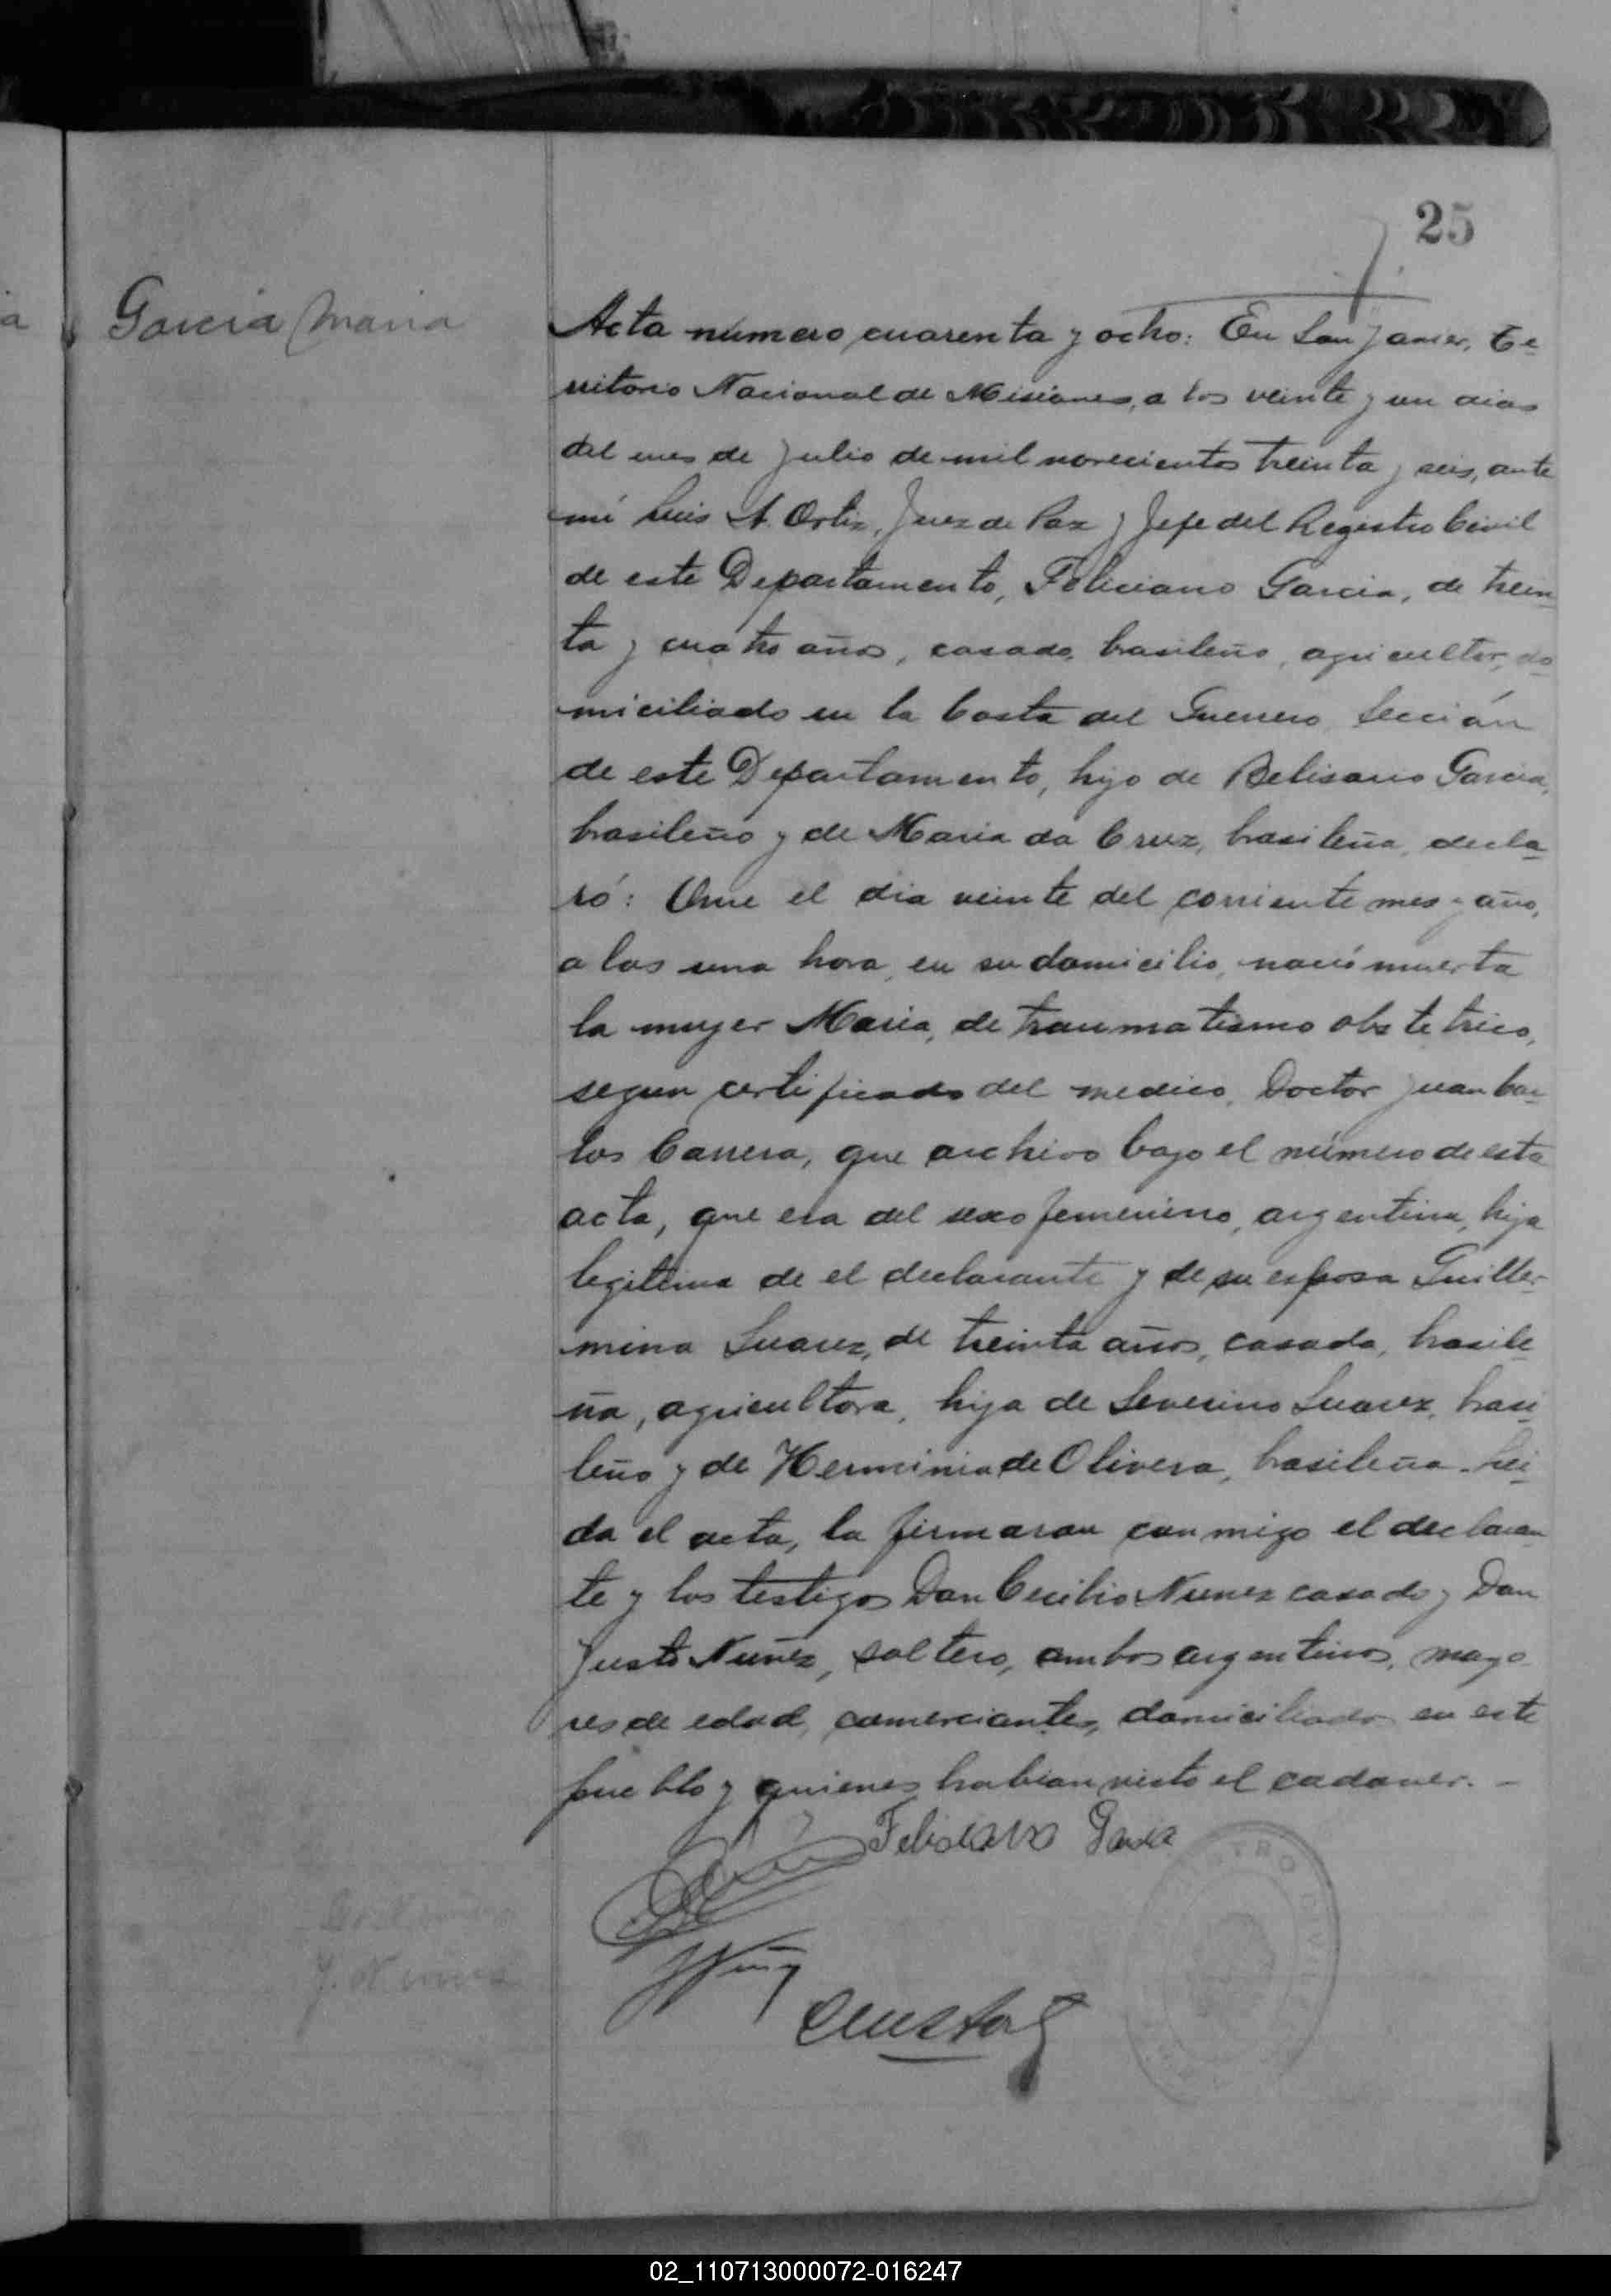 25
Garcia Maria
Acta número cuarenta y ocho: En San Javier, Te-
rritorio Nacional de Misiones, a los veinte y un dias
del mes de Julio de mil novecientos treinta y seis, ante
mí Luis A. Ortiz, Juez de Paz y Jefe del Registro Civil
de este Departamento, Feliciano Garcia, de trein-
ta y cuatro años, casado, brasileño, agricultor, do-
miciliado en la Costa del Guerrero Sección
de este Departamento, hijo de Belisario Garcia,
brasileño y de Maria da Cruz, brasileña, decla-
ró: Que el dia veinte del corriente mes y año,
a las una hora, en su domicilio, nació muerta
la mujer Maria, de traumatismo obstetrico,
segun certificado del medico, Doctor Juan Car-
los Carrera, que archivo bajo el número de esta
acta, que era del sexo femenino, argentina, hija
legitima de el declarante y de su esposa Guiller-
mina Suarez, de treinta años, casada, brasile-
ña, agricultora, hija de Severino Suarez, brasi-
leño y de Herminia de Olivera, brasileña. Lei-
da el acta, la firmaron conmigo el declaran-
te y los testigos Don Cecilio Nunez casado y Don
Justo Nuñez, soltero, ambos argentinos, mayo-
res de edad, comerciantes, domiciliados en este
pueblo y quienes habian visto el cadaver. -
Feliciano Garcia
J. Nunez
02_110713000072-016247